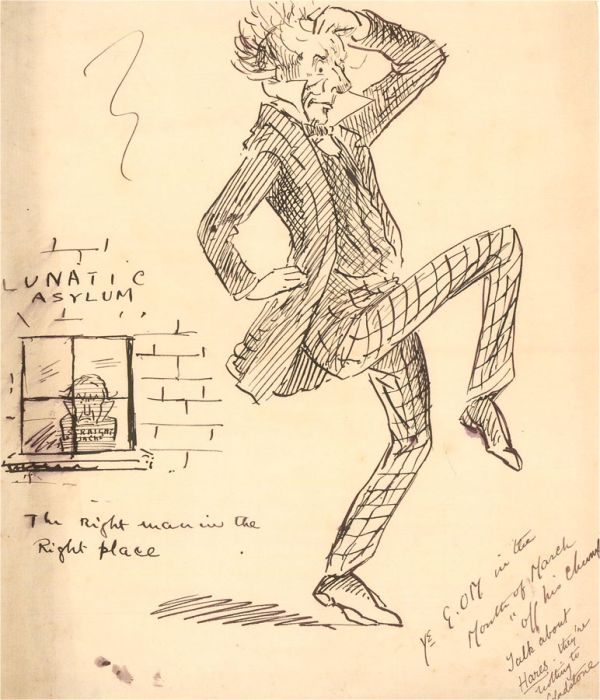 LUNATIC
ASYLUM
STRAIGHT
JACKET
The Right man in the
Right place
Ye G.OM in the
Month of March
"off his chump"
Talk about
Hares. they're
nothing to
Gladstone